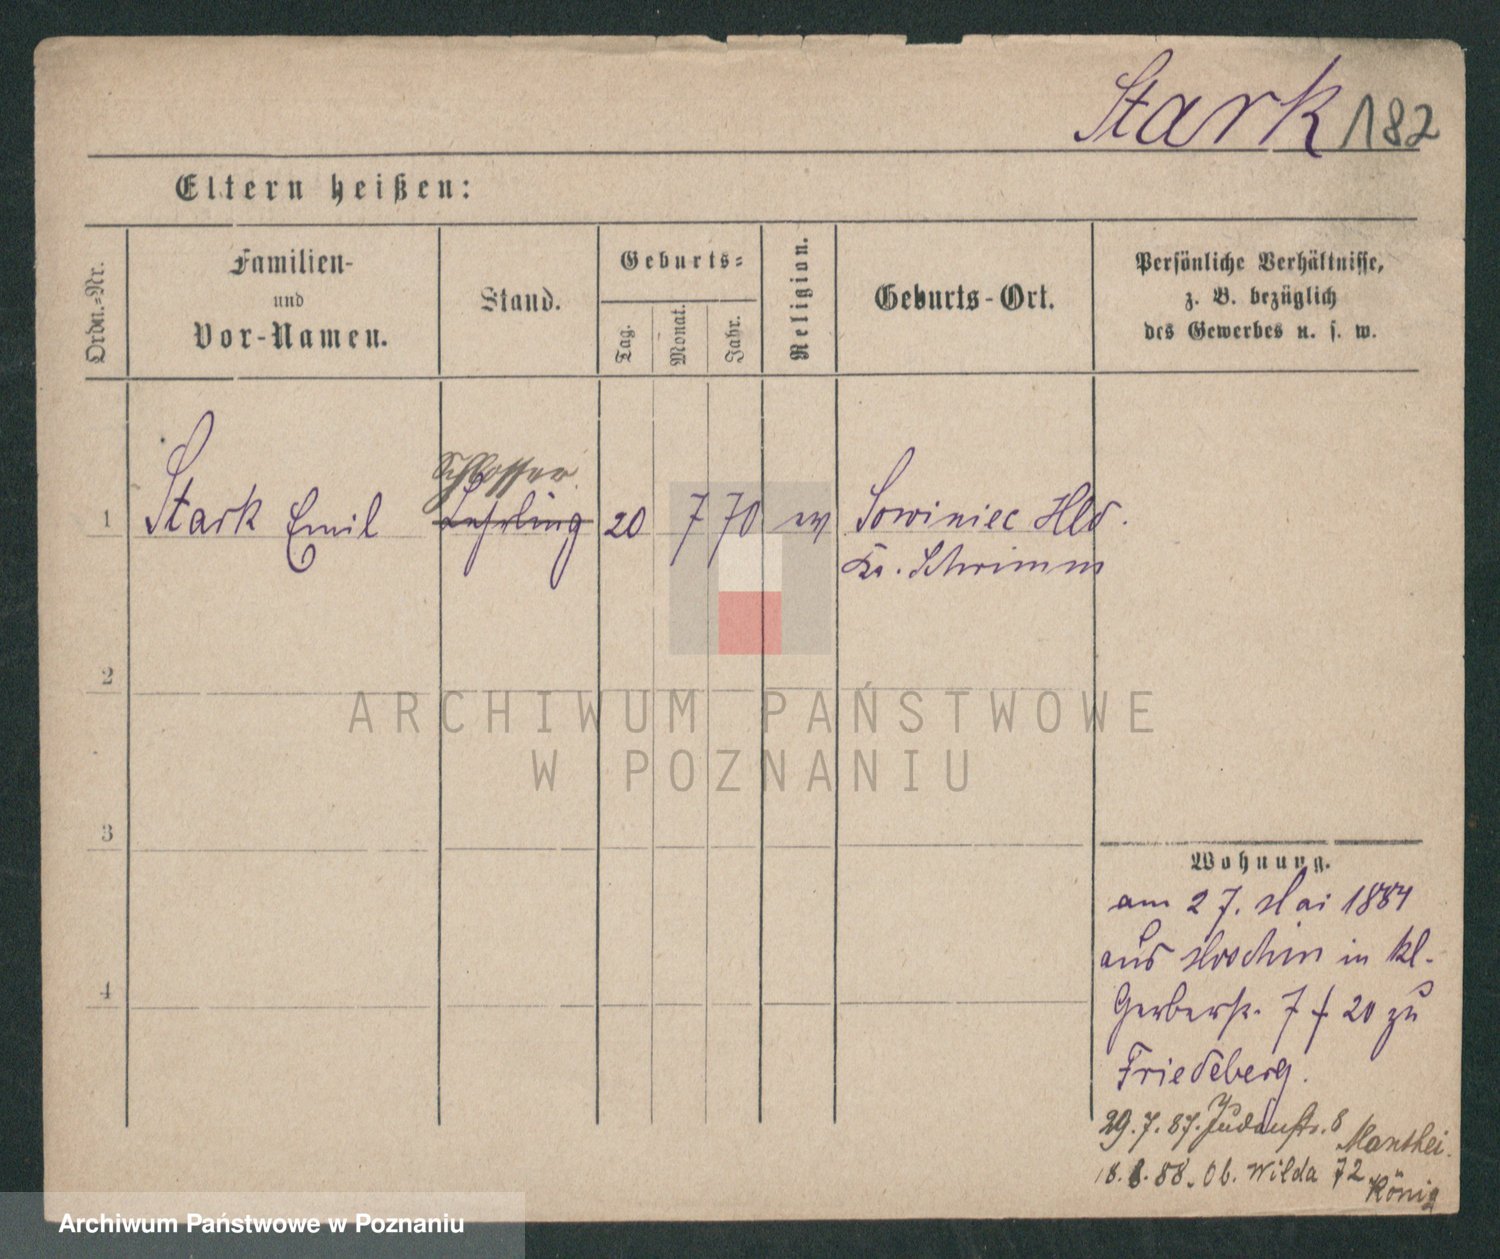 Stark 182
Eltern heißen:
Ordn.-Nr.
Familien-
und
Vor-Namen.
Stand.
Geburts-
Tag.
Monat.
Jahr.
Religion.
Geburts-Ort.
Persönliche Verhältnisse,
z. B. bezüglich
des Gewerbes u. s. w.
Schlosser
1 Stark Emil Lehrling 20 7 70 ev Sowiniec Hld.
Kr. Schrimm
2
3
4
Wohnung.
am 27. Mai 1884
aus Moschin in kl.
Gerberstr. 7 f 20 zu
Friedeberg.
29.7.87. Judenstr. 8 Manthei.
18. 88. Ob. Wilda 72
König
ARCHIWUM PAŃSTWOWE
W POZNANIU
Archiwum Państwowe w Poznaniu